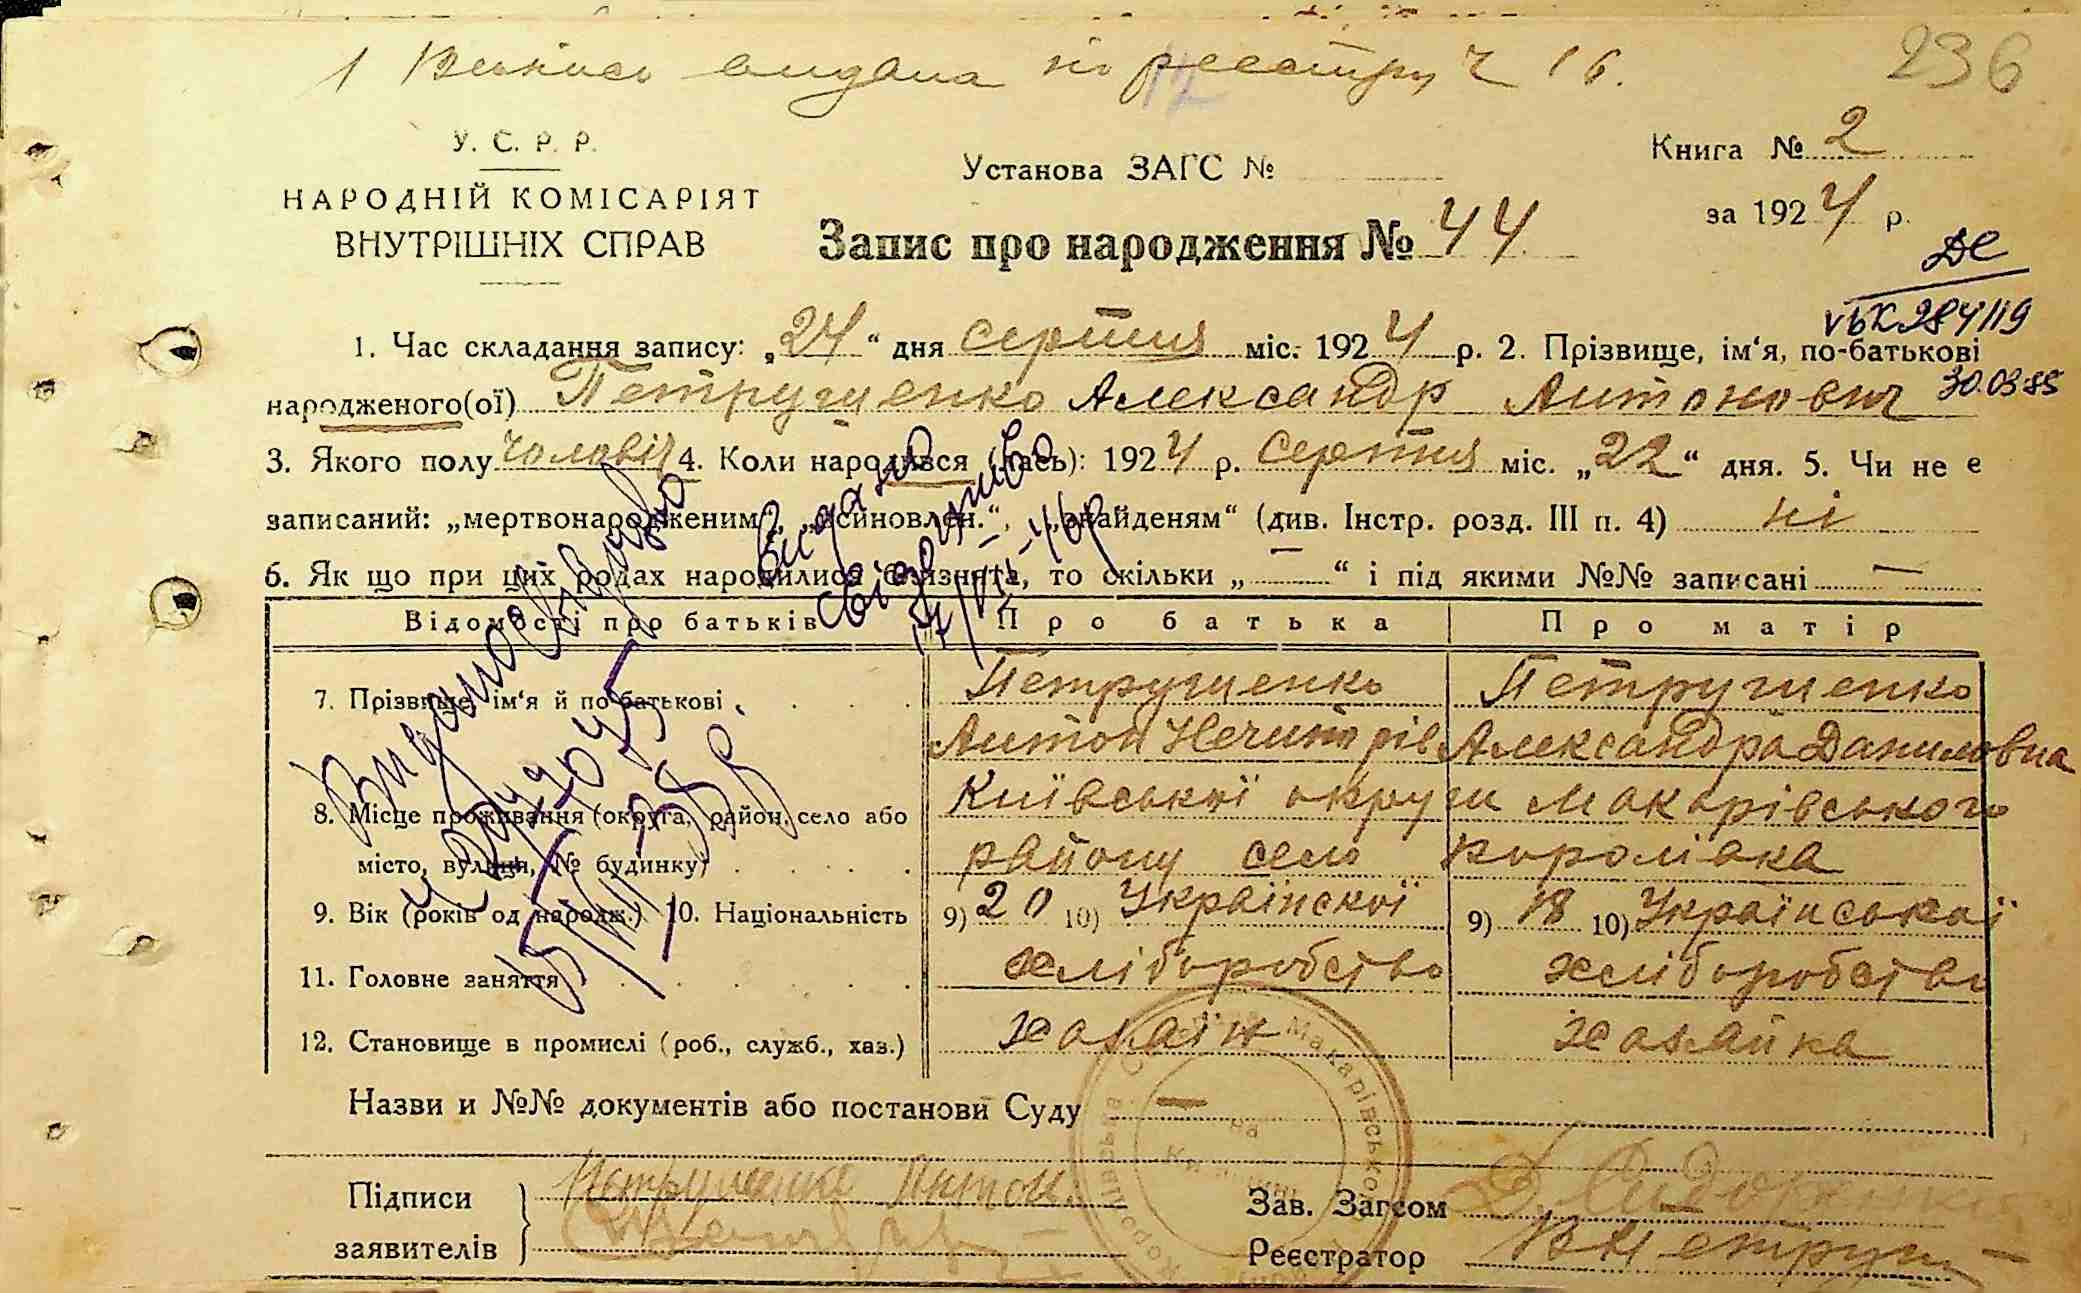 1 Випись видана по реєстру Ч 16.
236
У. С. Р. Р.
НАРОДНІЙ КОМІСАРІЯТ
ВНУТРІШНІХ СПРАВ
Установа ЗАГС №
Книга № 2
за 1924 р.
Запис про народження № 44
ДС
VБК 284119
30.03.85
1. Час складання запису: „24“ дня серпня міс. 1924 р. 2. Прізвище, ім‘я, по-батькові
народженого(ої) Петрущенко Александр Антонович
3. Якого полу чоловіч 4. Коли народився (лась): 1924 р. Серпня міс. „22“ дня. 5. Чи не є
записаний: „мертвонародженим“, „всиновлен.“, „знайденям“ (див. Інстр. розд. III п. 4) ні
6. Як що при цих родах народилися близнята, то скільки „—“ і під якими №№ записані —
Видано
свідоцтво
Відомості про батьків
Про батька
Про матір
7. Прізвище, ім‘я й по-батькові
Петрущенко
Петрущенко
Антон
Александра Даниловна
8. Місце проживання (округа, район, село або
місто, вулиця, № будинку)
Київської округи Макарівського
району село Королівка
9. Вік (років од народж.) 10. Національність
9) 20 10) Українскої
9) 18 10) Української
11. Головне заняття
хліборобство
хліборобство
12. Становище в промислі (роб., служб., хаз.)
хазяїн
хазяйка
Назви и №№ документів або постанови Суду —
Підписи
заявителів
Петрущенко Антон
Зав. Загсом
Реєстратор
Макарівського